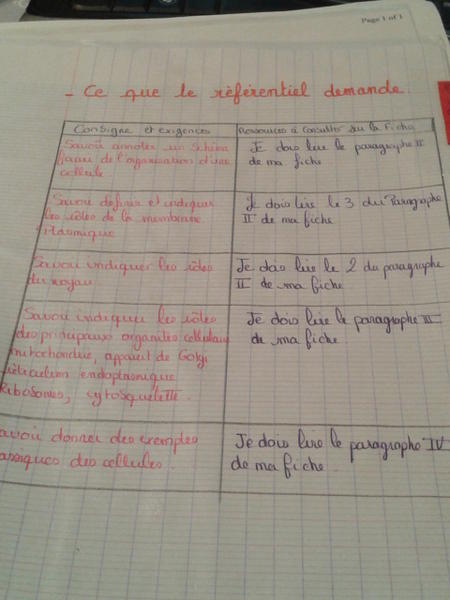 Page 1 of 1
- Ce que le référentiel demande.
Consigne et exigences
Ressources à Consulter sur la Fiche
Savoir annoter un Schéma
de l'organisation d'une
cellule
Je dois lire le paragraphe II
de ma fiche
Savoir définir et indiquer
les rôles de la membrane
Plasmique
Je dois lire le 3 du Paragraphe
II de ma fiche
Savoir indiquer les rôles
du noyau
Je dois lire le 2 du paragraphe
II de ma fiche
Savoir indiquer les rôles
des principaux organites cellulaires
mitochondrie, appareil de Golgi
réticulum endoplasmique
Ribosomes, cytosquelette.
Je dois lire le paragraphe III
de ma fiche
avoir donner des exemples
des cellules.
Je dois lire le paragraphe IV
de ma fiche